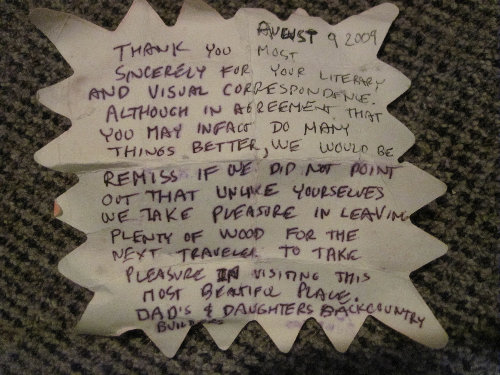 AUGUST 9 2009
THANK YOU MOST
SINCERELY FOR YOUR LITERARY
AND VISUAL CORRESPONDENCE.
ALTHOUGH IN AGREEMENT THAT
YOU MAY INFACT DO MANY
THINGS BETTER, WE WOULD BE
REMISS IF WE DID NOT POINT
OUT THAT UNLIKE YOURSELVES
WE TAKE PLEASURE IN LEAVING
PLENTY OF WOOD FOR THE
NEXT TRAVELER TO TAKE
PLEASURE IN VISITING THIS
MOST BEATIFUL PLACE.
DAD'S & DAUGHTERS BACKCOUNTRY
BUILDERS